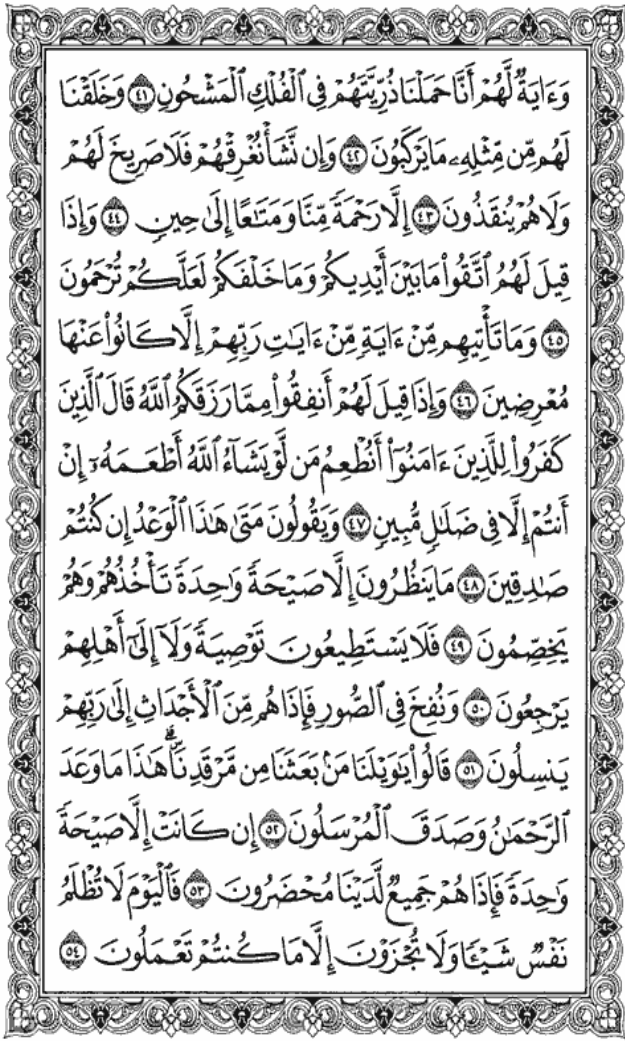 وَءَايَةٌ لَّهُمْ أَنَّا حَمَلْنَا ذُرِّيَّتَهُمْ فِى ٱلْفُلْكِ ٱلْمَشْحُونِ ٤١ وَخَلَقْنَا
لَهُم مِّن مِّثْلِهِۦ مَا يَرْكَبُونَ ٤٢ وَإِن نَّشَأْ نُغْرِقْهُمْ فَلَا صَرِيخَ لَهُمْ
وَلَا هُمْ يُنقَذُونَ ٤٣ إِلَّا رَحْمَةً مِّنَّا وَمَتَٰعًا إِلَىٰ حِينٍ ٤٤ وَإِذَا
قِيلَ لَهُمُ ٱتَّقُوا۟ مَا بَيْنَ أَيْدِيكُمْ وَمَا خَلْفَكُمْ لَعَلَّكُمْ تُرْحَمُونَ
٤٥ وَمَا تَأْتِيهِم مِّنْ ءَايَةٍ مِّنْ ءَايَٰتِ رَبِّهِمْ إِلَّا كَانُوا۟ عَنْهَا
مُعْرِضِينَ ٤٦ وَإِذَا قِيلَ لَهُمْ أَنفِقُوا۟ مِمَّا رَزَقَكُمُ ٱللَّهُ قَالَ ٱلَّذِينَ
كَفَرُوا۟ لِلَّذِينَ ءَامَنُوٓا۟ أَنُطْعِمُ مَن لَّوْ يَشَآءُ ٱللَّهُ أَطْعَمَهُۥٓ إِنْ
أَنتُمْ إِلَّا فِى ضَلَٰلٍ مُّبِينٍ ٤٧ وَيَقُولُونَ مَتَىٰ هَٰذَا ٱلْوَعْدُ إِن كُنتُمْ
صَٰدِقِينَ ٤٨ مَا يَنظُرُونَ إِلَّا صَيْحَةً وَٰحِدَةً تَأْخُذُهُمْ وَهُمْ
يَخِصِّمُونَ ٤٩ فَلَا يَسْتَطِيعُونَ تَوْصِيَةً وَلَآ إِلَىٰٓ أَهْلِهِمْ
يَرْجِعُونَ ٥٠ وَنُفِخَ فِى ٱلصُّورِ فَإِذَا هُم مِّنَ ٱلْأَجْدَاثِ إِلَىٰ رَبِّهِمْ
يَنسِلُونَ ٥١ قَالُوا۟ يَٰوَيْلَنَا مَنۢ بَعَثَنَا مِن مَّرْقَدِنَا ۜ ۗ هَٰذَا مَا وَعَدَ
ٱلرَّحْمَٰنُ وَصَدَقَ ٱلْمُرْسَلُونَ ٥٢ إِن كَانَتْ إِلَّا صَيْحَةً
وَٰحِدَةً فَإِذَا هُمْ جَمِيعٌ لَّدَيْنَا مُحْضَرُونَ ٥٣ فَٱلْيَوْمَ لَا تُظْلَمُ
نَفْسٌ شَيْـًٔا وَلَا تُجْزَوْنَ إِلَّا مَا كُنتُمْ تَعْمَلُونَ ٥٤